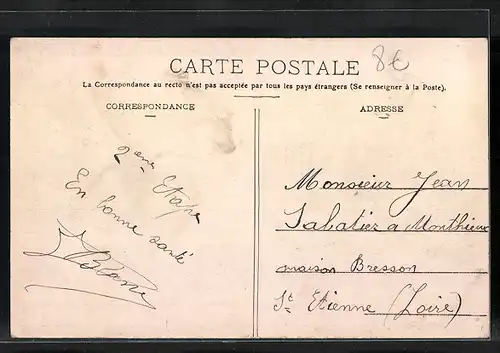 8€
CARTE POSTALE
La Correspondance au recto n'est pas acceptée par tous les pays étrangers (Se renseigner à la Poste).
CORRESPONDANCE
ADRESSE
2eme Etape
En bonne santé
Monsieur Jean
Sabatier a Monthieux
maison Bresson
St Etienne (Loire)